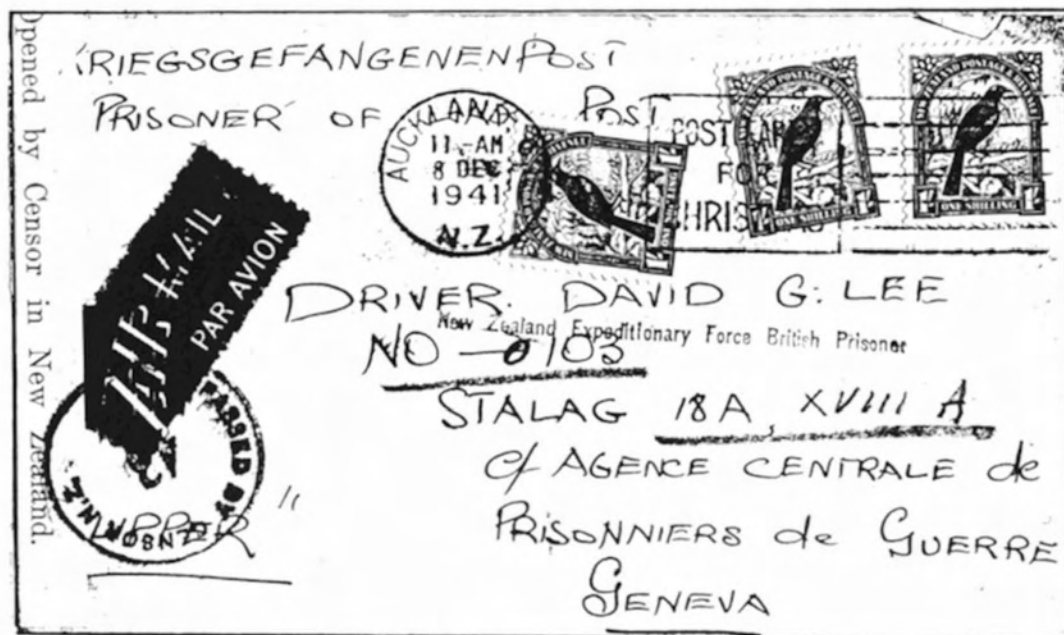 Opened by Censor in New Zealand.
RIEGSGEFANGENENPOST
PRISONER OF POST
AUCKLAND
11-AM
8 DEC
1941
N.Z.
POST EARLY
FOR
CHRISTMAS
ONE SHILLING
ONE SHILLING
AIR MAIL
PAR AVION
DRIVER. DAVID G. LEE
New Zealand Expeditionary Force British Prisoner
NO 8103
STALAG 18A XVIII A
c/ AGENCE CENTRALE de
PRISONNIERS de GUERRE
GENEVA
PASSED BY
CENSOR N.Z.